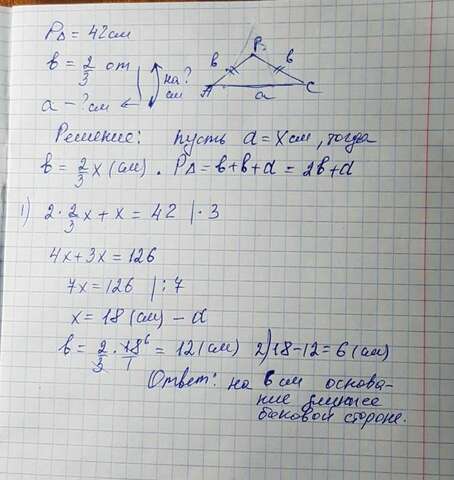 P△ = 42 см
в = 2/3 от
на?
см
a - ? см
B
в
в
A
C
a
Решение: пусть a = x см, тогда
в = 2/3 x (см). P△ = в + в + a = 2в + a
1) 2 · 2/3 x + x = 42 | · 3
4x + 3x = 126
7x = 126 | : 7
x = 18 (см) - a
в = 2/3 · 18⁶/1 = 12 (см) 2) 18 - 12 = 6 (см)
Ответ: на 6 см основа-
ние длиннее
боковой стороне.